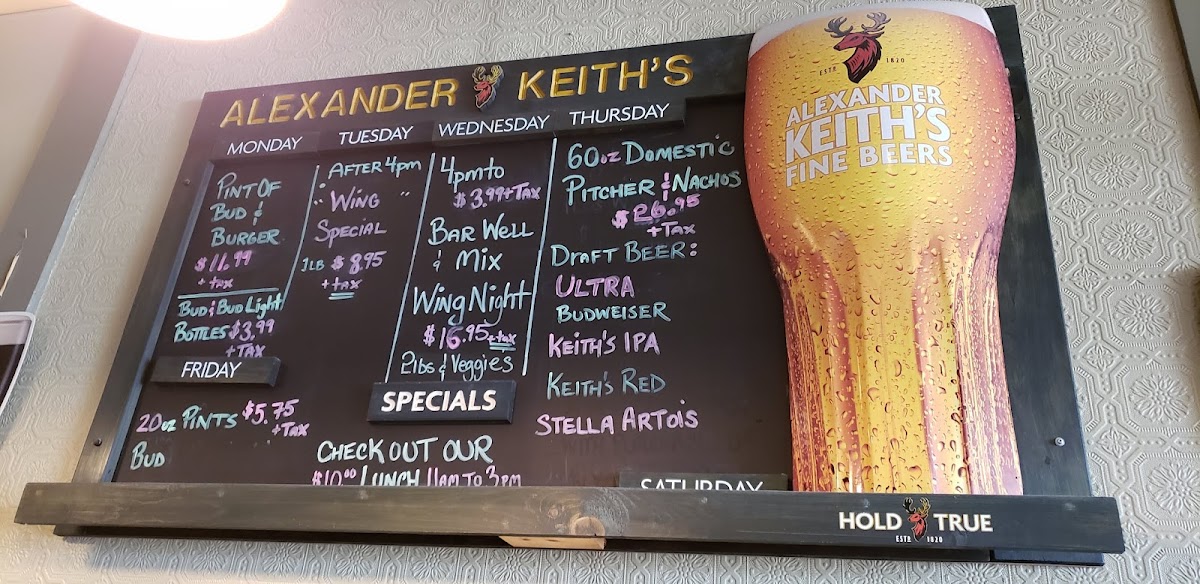 ALEXANDER KEITH'S
MONDAY
PINT OF
BUD &
BURGER
$11.99
+ tax
BUD & BUD Light
BOTTLES $3.99
+ TAX
TUESDAY
AFTER 4pm
" WING "
SPECIAL
1LB $8.95
+ tax
WEDNESDAY
4pm to
$3.99 + TAX
BAR WELL
& MIX
WING NIGHT
$16.95 + tax
2lbs & Veggies
THURSDAY
60oz DOMESTIC
PITCHER & NACHOS
$26.95
+ TAX
DRAFT BEER:
ULTRA
BUDWEISER
KEITH'S IPA
KEITH'S RED
STELLA ARTOIS
FRIDAY
20oz PINTS $5.75
+ TAX
BUD
SPECIALS
CHECK OUT OUR
$10.00 LUNCH 11AM TO 3PM
SATURDAY
ESTD 1820
ALEXANDER
KEITH'S
FINE BEERS
HOLD TRUE
ESTD 1820